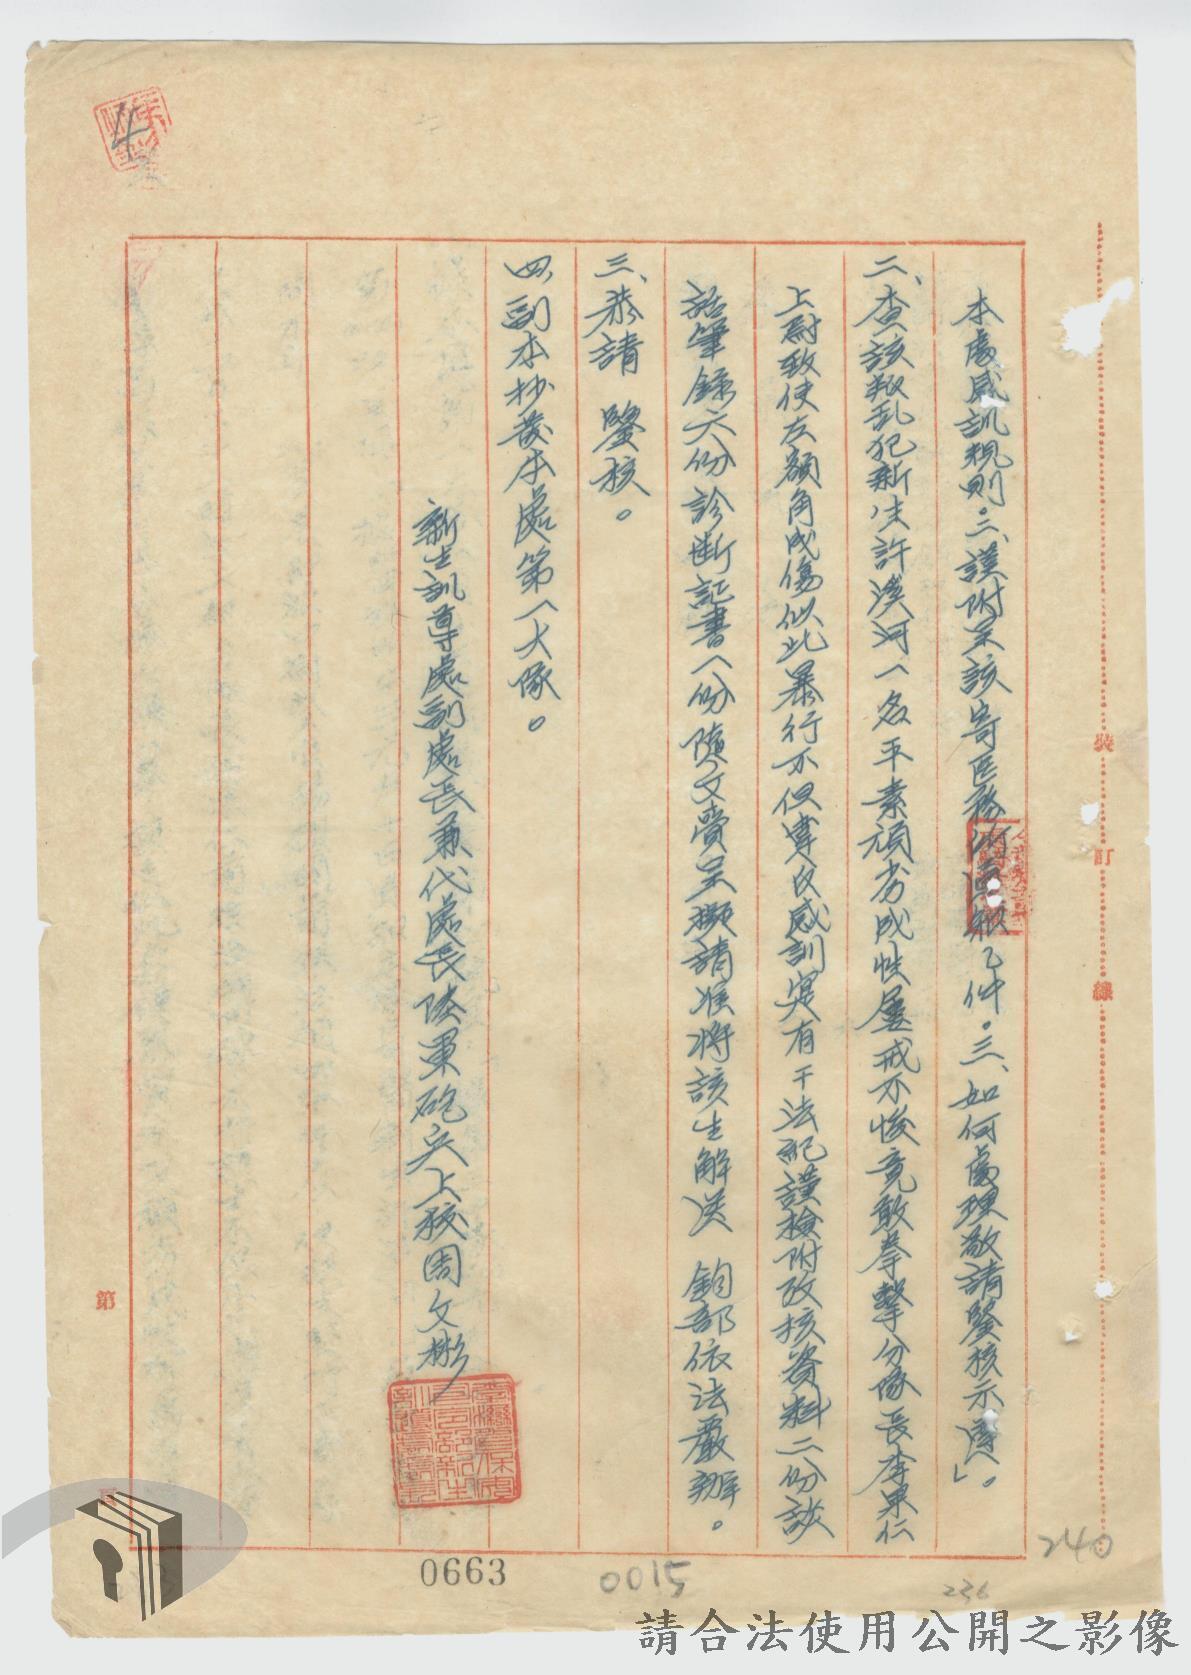 本處感訓規則。二、謹附呈該寄医務所原紙乙件。三、如何處理敬請鑒核示遵」。
二、查該叛乱犯新生許溪河一名平素頑劣成性屢戒不悛竟敢拳擊分隊長李果仁
上尉致使左額角成傷似此暴行不但違反感訓寔有干法紀謹檢附攷核資料二份談
話筆錄六份診断証書一份隨文賫呈擬請准将該生解送 鈞部依法嚴辦。
三、恭請 鑒核。
四、副本抄發本處第一大隊。
新生訓導處副處長兼代處長陸軍砲兵上校周文彬
裝
訂
線
第
頁
4
0663
0015
236
240
請合法使用公開之影像